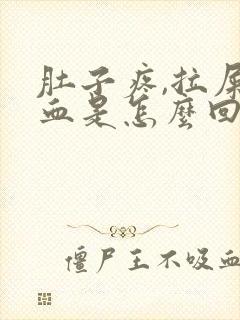 肚子疼,拉屎
血是怎麼回
僵尸王不吸血